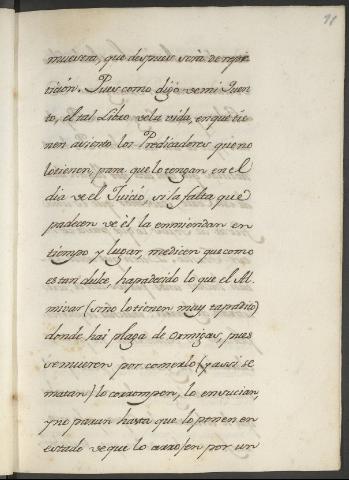 91
muevera, que despues será de repe
ticion. Pues como digo de mi Quen
to, el tal Libro de la vida, en que tie
nen asiento los Predicadores que no
lo tienen, para que lo tengan en el
dia de el Juicio, si la falta que
padecen de él la enmiendan en
tiempo y lugar, me dicen que como
es tan dulce, ha padecido lo que el Al
mivar (sino lo tienen muy tapadito)
donde hai plaga de ormigas, pues
se mueren por comerlo (y assi se
matan) lo corrompen, lo ensucian,
y no paran hasta que lo ponen en
estado de que lo arrojen por un